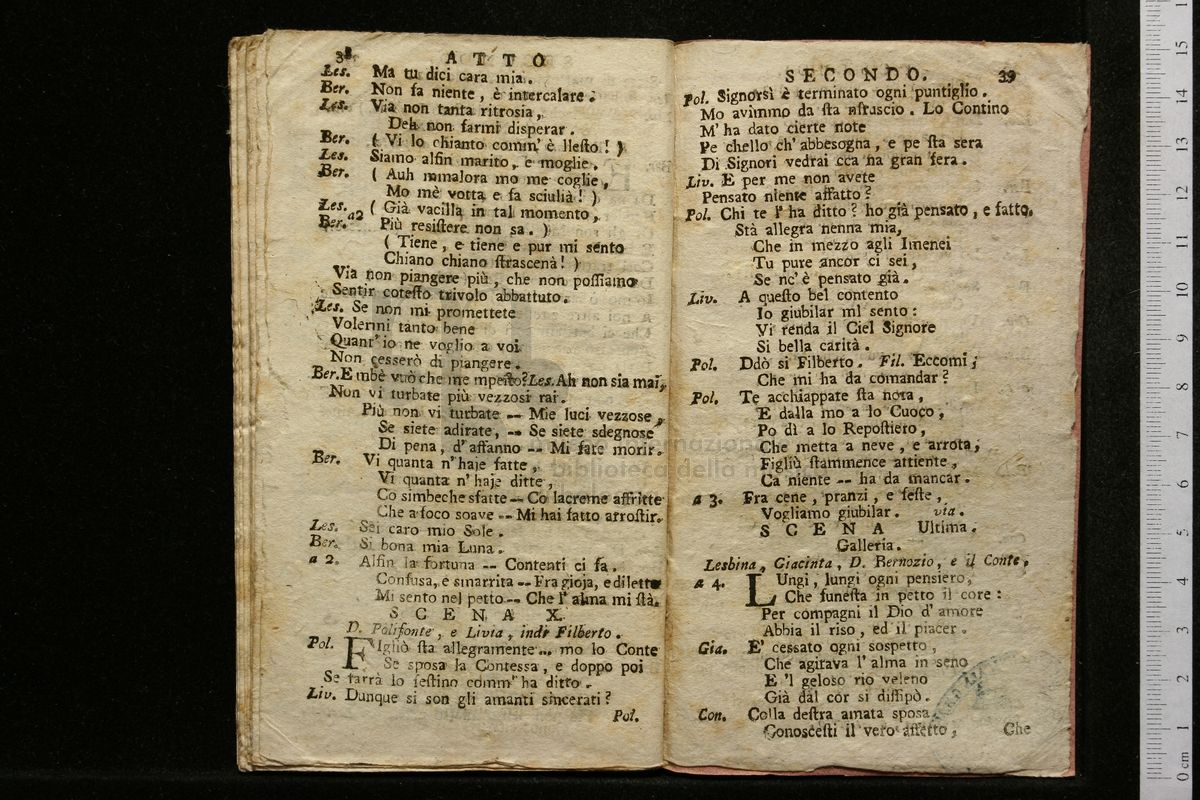 38 ATTO
Les. Ma tu dici cara mia.
Ber. Non fa niente, è intercalare.
Les. Via non tanta ritrosia,
Deh non farmi disperar.
Ber. ( Vi lo chianto comm' è llesto! )
Les. Siamo alfin marito, e moglie.
Ber. ( Auh mmalora mo me coglie,
Mo mè votta e fa sciulià! )
Les. ( Già vacilla in tal momento,
Ber. a2 Più resistere non sa. )
( Tiene, e tiene e pur mi sento
Chiano chiano strascenà! )
Via non piangere più, che non possiamo
Sentir cotesto trivolo abbattuto.
Les. Se non mi promettete
Volermi tanto bene
Quant' io ne voglio a voi
Non cesserò di piangere.
Ber. E mbè vuò che me mpesto? Les. Ah non sia mai,
Non vi turbate più vezzosi rai.
Più non vi turbate -- Mie luci vezzose,
Se siete adirate, -- Se siete sdegnose
Di pena, d' affanno -- Mi fate morir.
Ber. Vi quanta n' haje fatte,
Vi quanta n' haje ditte,
Co simbeche sfatte -- Co lacreme affritte
Che a foco soave -- Mi hai fatto arrostir.
Les. Sei caro mio Sole.
Ber. Si bona mia Luna.
a 2. Alfin la fortuna -- Contenti ci fa.
Confusa, e smarrita -- Fra gioja, e diletto
Mi sento nel petto -- Che l' alma mi stà.
SCENA X.
D. Polifonte, e Livia, indi Filberto.
Pol. Figliò sta allegramente.. mo lo Conte
Se sposa la Contessa, e doppo poi
Se farrà lo festino comm' ha ditto.
Liv. Dunque si son gli amanti sincerati?
Pol.
SECONDO. 39
Pol. Signorsì è terminato ogni puntiglio.
Mo avimmo da sta nstruscio. Lo Contino
M' ha dato cierte note
Pe chello ch' abbesogna, e pe sta sera
Di Signori vedrai cca na gran fera.
Liv. E per me non avete
Pensato niente affatto?
Pol. Chi te l' ha ditto? ho già pensato, e fatto.
Stà allegra nenna mia,
Che in mezzo agli Imenei
Tu pure ancor ci sei,
Se nc' è pensato già.
Liv. A questo bel contento
Io giubilar mI sento:
Vi renda il Ciel Signore
Si bella carità.
Pol. Ddò si Filberto. Fil. Eccomi;
Che mi ha da comandar?
Pol. Te acchiappate sta nota,
E dalla mo a lo Cuoco,
Po dì a lo Repostiero,
Che metta a neve, e arrota,
Figliù stammence attiente,
Ca niente -- ha da mancar.
a 3. Fra cene, pranzi, e feste,
Vogliamo giubilar. via.
SCENA Ultima.
Galleria.
Lesbina, Giacinta, D. Bernozio, e il Conte.
a 4. LUngi, lungi ogni pensiero,
Che funesta in petto il core:
Per compagni il Dio d' amore
Abbia il riso, ed il piacer.
Gia. E' cessato ogni sospetto,
Che agitava l' alma in seno
E 'l geloso rio veleno
Già dal cor si dissipò.
Con. Colla destra amata sposa
Conoscesti il vero affetto,
Che